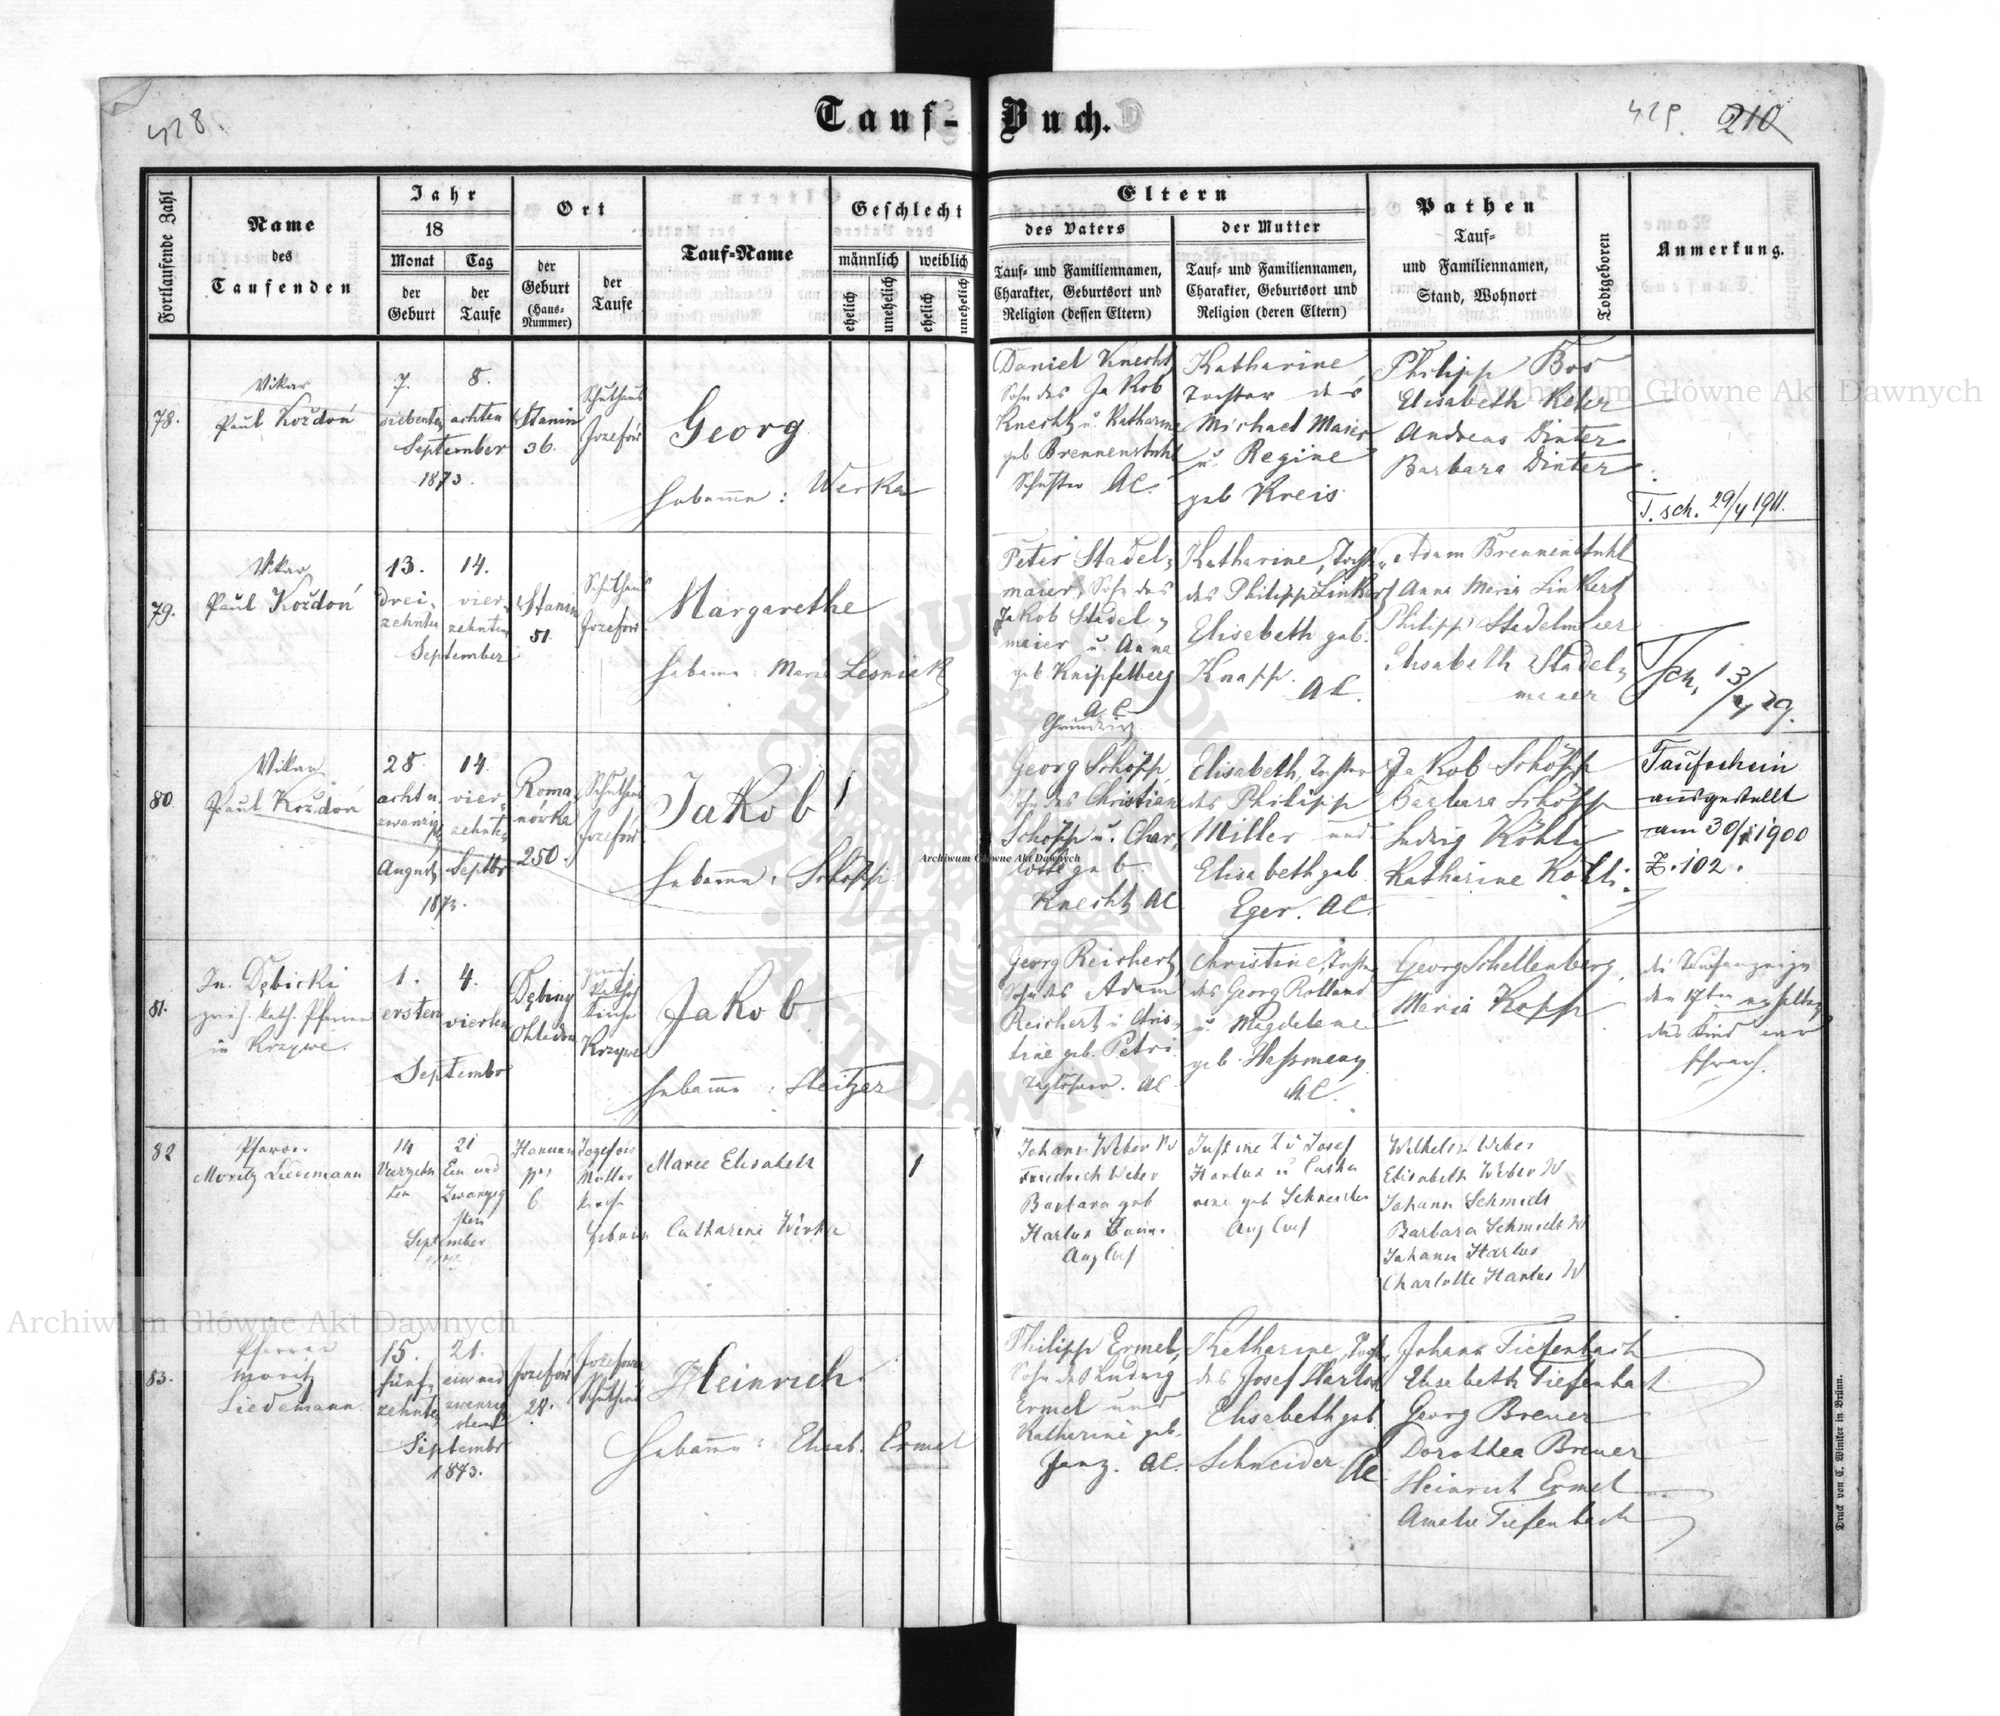 428.
429. 210
Tauf-Buch.
Fortlaufende Zahl
Name
des
Taufenden
Jahr
18
Monat
der
Geburt
Tag
der
Taufe
Ort
der
Geburt
(Haus-
Nummer)
der
Taufe
Tauf-Name
Geschlecht
männlich
weiblich
ehelich
unehelich
ehelich
unehelich
Eltern
des Vaters
Tauf- und Familiennamen,
Charakter, Geburtsort und
Religion (dessen Eltern)
der Mutter
Tauf- und Familiennamen,
Charakter, Geburtsort und
Religion (deren Eltern)
Pathen
Tauf-
und Familiennamen,
Stand, Wohnort
Todtgeboren
Anmerkung.
78.
Vikar
Paul Kożdoń
7.
siebenten
8.
achten
September
1873.
Stanin
36.
Schulhaus
Jozefów
Georg
Hebamme: Werka
Daniel Knecht
Sohn des Jakob
Knecht u. Katharine
geb Brennenstuhl
Schuster AC.
Katharine
Tochter des
Michael Maier
u. Regine
geb Kreis
Philipp Bos
Elisabeth Keler
Andreas Dinter
Barbara Dinter
T. sch. 29/4 1911.
79.
Vikar
Paul Kożdoń
13.
drei-
zehnten
14.
vier-
zehnten
September
Stanin
51.
Schulhaus
Jozefów
Margarethe
Hebamme: Marie Lesniak
Peter Stadel-
maier, Sohn des
Jakob Stadel-
maier u. Anna
geb. Knipfelberg
AC
Katharine, Tochter
des Philipp Linkert
Elisabeth geb.
Knapp.
AC.
Adam Brennenstuhl
Anna Maria Linkert
Philipp Stadelmaier
Elisabeth Stadel-
maier
Tsch. 13/4 29.
80.
Vikar
Paul Kożdoń
28.
acht u.
zwanzig
August
14.
vier-
zehnten
Septbr
1873.
Roma-
nówka
250.
Schulhaus
Jozefów.
Jakob
1
Hebamme: Schöpp
Georg Schöpp,
Sohn des Christian
Schöpp u. Char-
lotte geb.
Knecht AC
Elisabeth, Tochter
des Philipp
Miller und
Elisabeth geb
Eger. AC.
Jakob Schöpp
Barbara Schöpp
Ludwig Köhli
Katharine Kohli.
Taufschein
ausgestellt
am 30/1 1900
Z. 102.
81.
In. Dębicki
griech. kath. Pfarrer
in Krzywe.
1.
ersten
4.
vierten
Septembr
Dębiny
Ohladow
griech.
kath.
Kirche
Krzywe
Jakob
Hebamme: Steitzer
Georg Reichert,
Sohn des Adam
Reichert u Chris-
tine geb. Petri
Taglöhner. AC
Christine, Tochter
des Georg Rolland
u. Magdalene
geb. Hessmann
AC.
Georg Schellenberg,
Maria Kopp
82
Pfarrer
Moritz Liedemann
14
Vierzehn
ten
21
Ein und
Zwanzig
sten
September
1873
Hanunin
No
6
Jozefów
Mutter
kirche
Marie Elisabeth
1
Hebamme Catharine Wirka
Johann Weber W
Friedrich Weber
Barbara geb
Harlos
Aug Conf
Justine T d Josef
Harlos u Catha
rine geb Schneider
Aug Conf
Wilhelm Weber
Elisabeth Weber W
Johann Schmidt
Barbara Schmidt W
Johann Harlos
Charlotte Harlos W
83.
Pfarrer
Moritz
Liedemann
15.
fünf-
zehnten
21.
ein und
zwanzig
sten
Septembr
1873.
Jozefów
28.
Jozefower
Schulhaus
Heinrich
Hebamme: Elisab. Ermel
Philipp Ermel,
Sohn des Ludwig
Ermel und
Katharine geb.
Janz. AC.
Katharine, Tochter
des Josef Harlos
Elisabeth geb
Schneider AC
Johann Tiefenbach
Elisabeth Tiefenbach
Georg Breuer
Dorothea Breuer
Heinrich Ermel
Amelie Tiefenbach
Druck von C. Winiker in Brünn.
Archiwum Główne Akt Dawnych
Archiwum Główne Akt Dawnych
Archiwum Główne Akt Dawnych